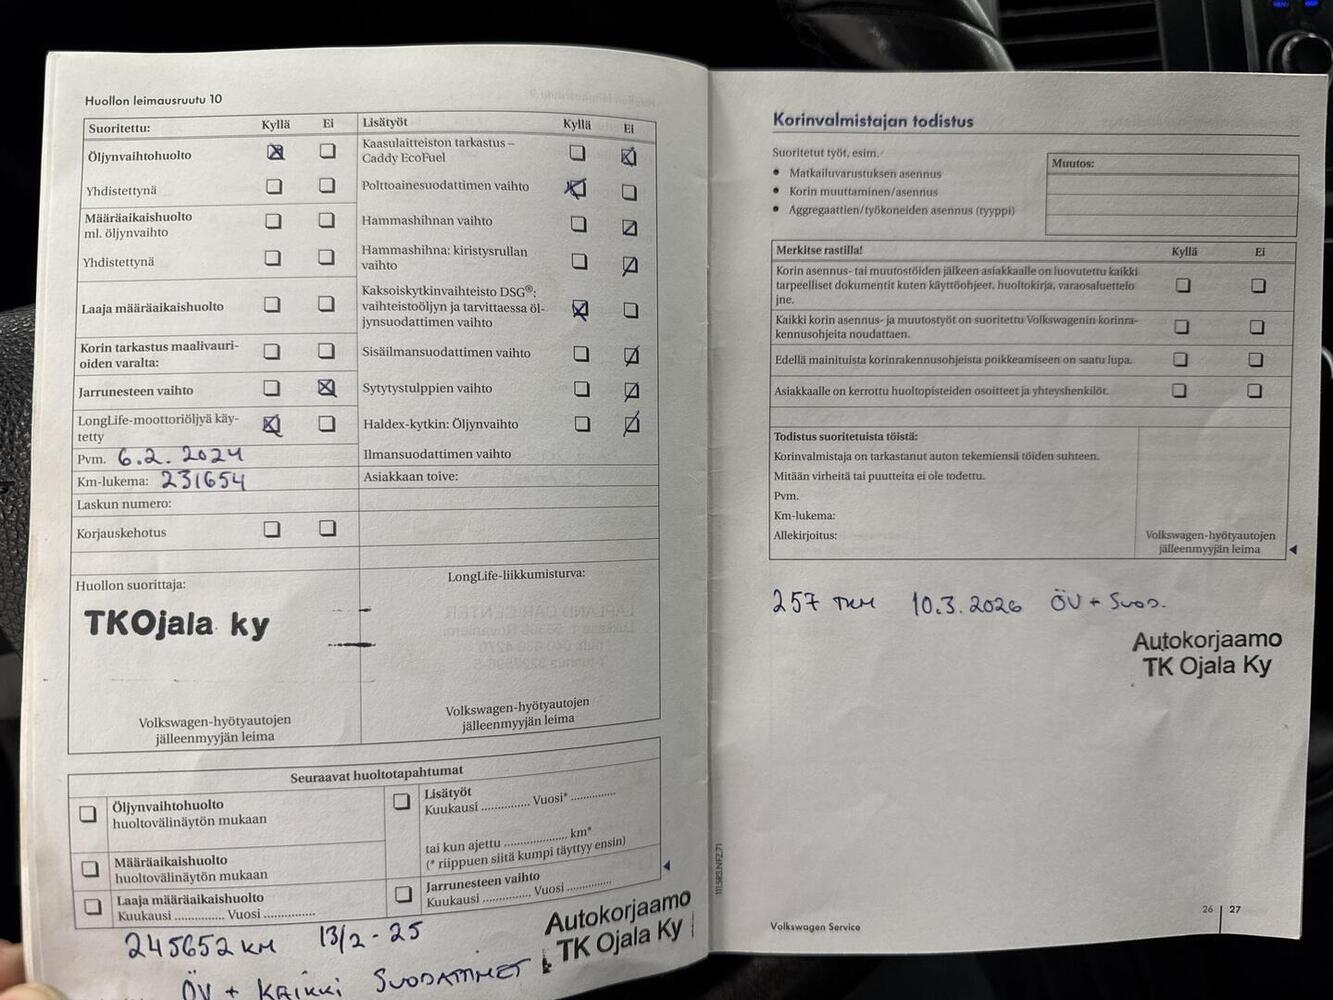 Huollon leimausruutu 10
Suoritettu: Kyllä Ei
Öljynvaihtohuolto
Yhdistettynä
Määräaikaishuolto
ml. öljynvaihto
Yhdistettynä
Laaja määräaikaishuolto
Korin tarkastus maalivauri-
oiden varalta:
Jarrunesteen vaihto
LongLife-moottoriöljyä käy-
tetty
Pvm. 6.2.2024
Km-lukema: 231654
Laskun numero:
Korjauskehotus
Lisätyöt Kyllä Ei
Kaasulaitteiston tarkastus –
Caddy EcoFuel
Polttoainesuodattimen vaihto
Hammashihnan vaihto
Hammashihna: kiristysrullan
vaihto
Kaksoiskytkinvaihteisto DSG®:
vaihteistoöljyn ja tarvittaessa öl-
jynsuodattimen vaihto
Sisäilmansuodattimen vaihto
Sytytystulppien vaihto
Haldex-kytkin: Öljynvaihto
Ilmansuodattimen vaihto
Asiakkaan toive:
Huollon suorittaja:
TKOjala ky
Volkswagen-hyötyautojen
jälleenmyyjän leima
LongLife-liikkumisturva:
LAPLAND CAR CENTER
Volkswagen-hyötyautojen
jälleenmyyjän leima
Seuraavat huoltotapahtumat
Öljynvaihtohuolto
huoltovälinäytön mukaan
Määräaikaishuolto
huoltovälinäytön mukaan
Laaja määräaikaishuolto
Kuukausi .............. Vuosi ..............
Lisätyöt
Kuukausi .............. Vuosi* .............
tai kun ajettu .................. km*
(* riippuen siitä kumpi täyttyy ensin)
Jarrunesteen vaihto
Kuukausi .............. Vuosi .............
245652 KM 13/2-25
ÖV + KAIKKI SUODATTIMET
Autokorjaamo
TK Ojala Ky
111.5R3.NFZ.71
Korinvalmistajan todistus
Suoritetut työt, esim.
• Matkailuvarustuksen asennus
• Korin muuttaminen/asennus
• Aggregaattien/työkoneiden asennus (tyyppi)
Muutos:
Merkitse rastilla! Kyllä Ei
Korin asennus- tai muutostöiden jälkeen asiakkaalle on luovutettu kaikki
tarpeelliset dokumentit kuten käyttöohjeet, huoltokirja, varaosaluettelo
jne.
Kaikki korin asennus- ja muutostyöt on suoritettu Volkswagenin korinra-
kennusohjeita noudattaen.
Edellä mainituista korinrakennusohjeista poikkeamiseen on saatu lupa.
Asiakkaalle on kerrottu huoltopisteiden osoitteet ja yhteyshenkilöt.
Todistus suoritetuista töistä:
Korinvalmistaja on tarkastanut auton tekemiensä töiden suhteen.
Mitään virheitä tai puutteita ei ole todettu.
Pvm.
Km-lukema:
Allekirjoitus:
Volkswagen-hyötyautojen
jälleenmyyjän leima
257 TKM 10.3.2026 ÖV + Suod.
Autokorjaamo
TK Ojala Ky
Volkswagen Service
26 | 27